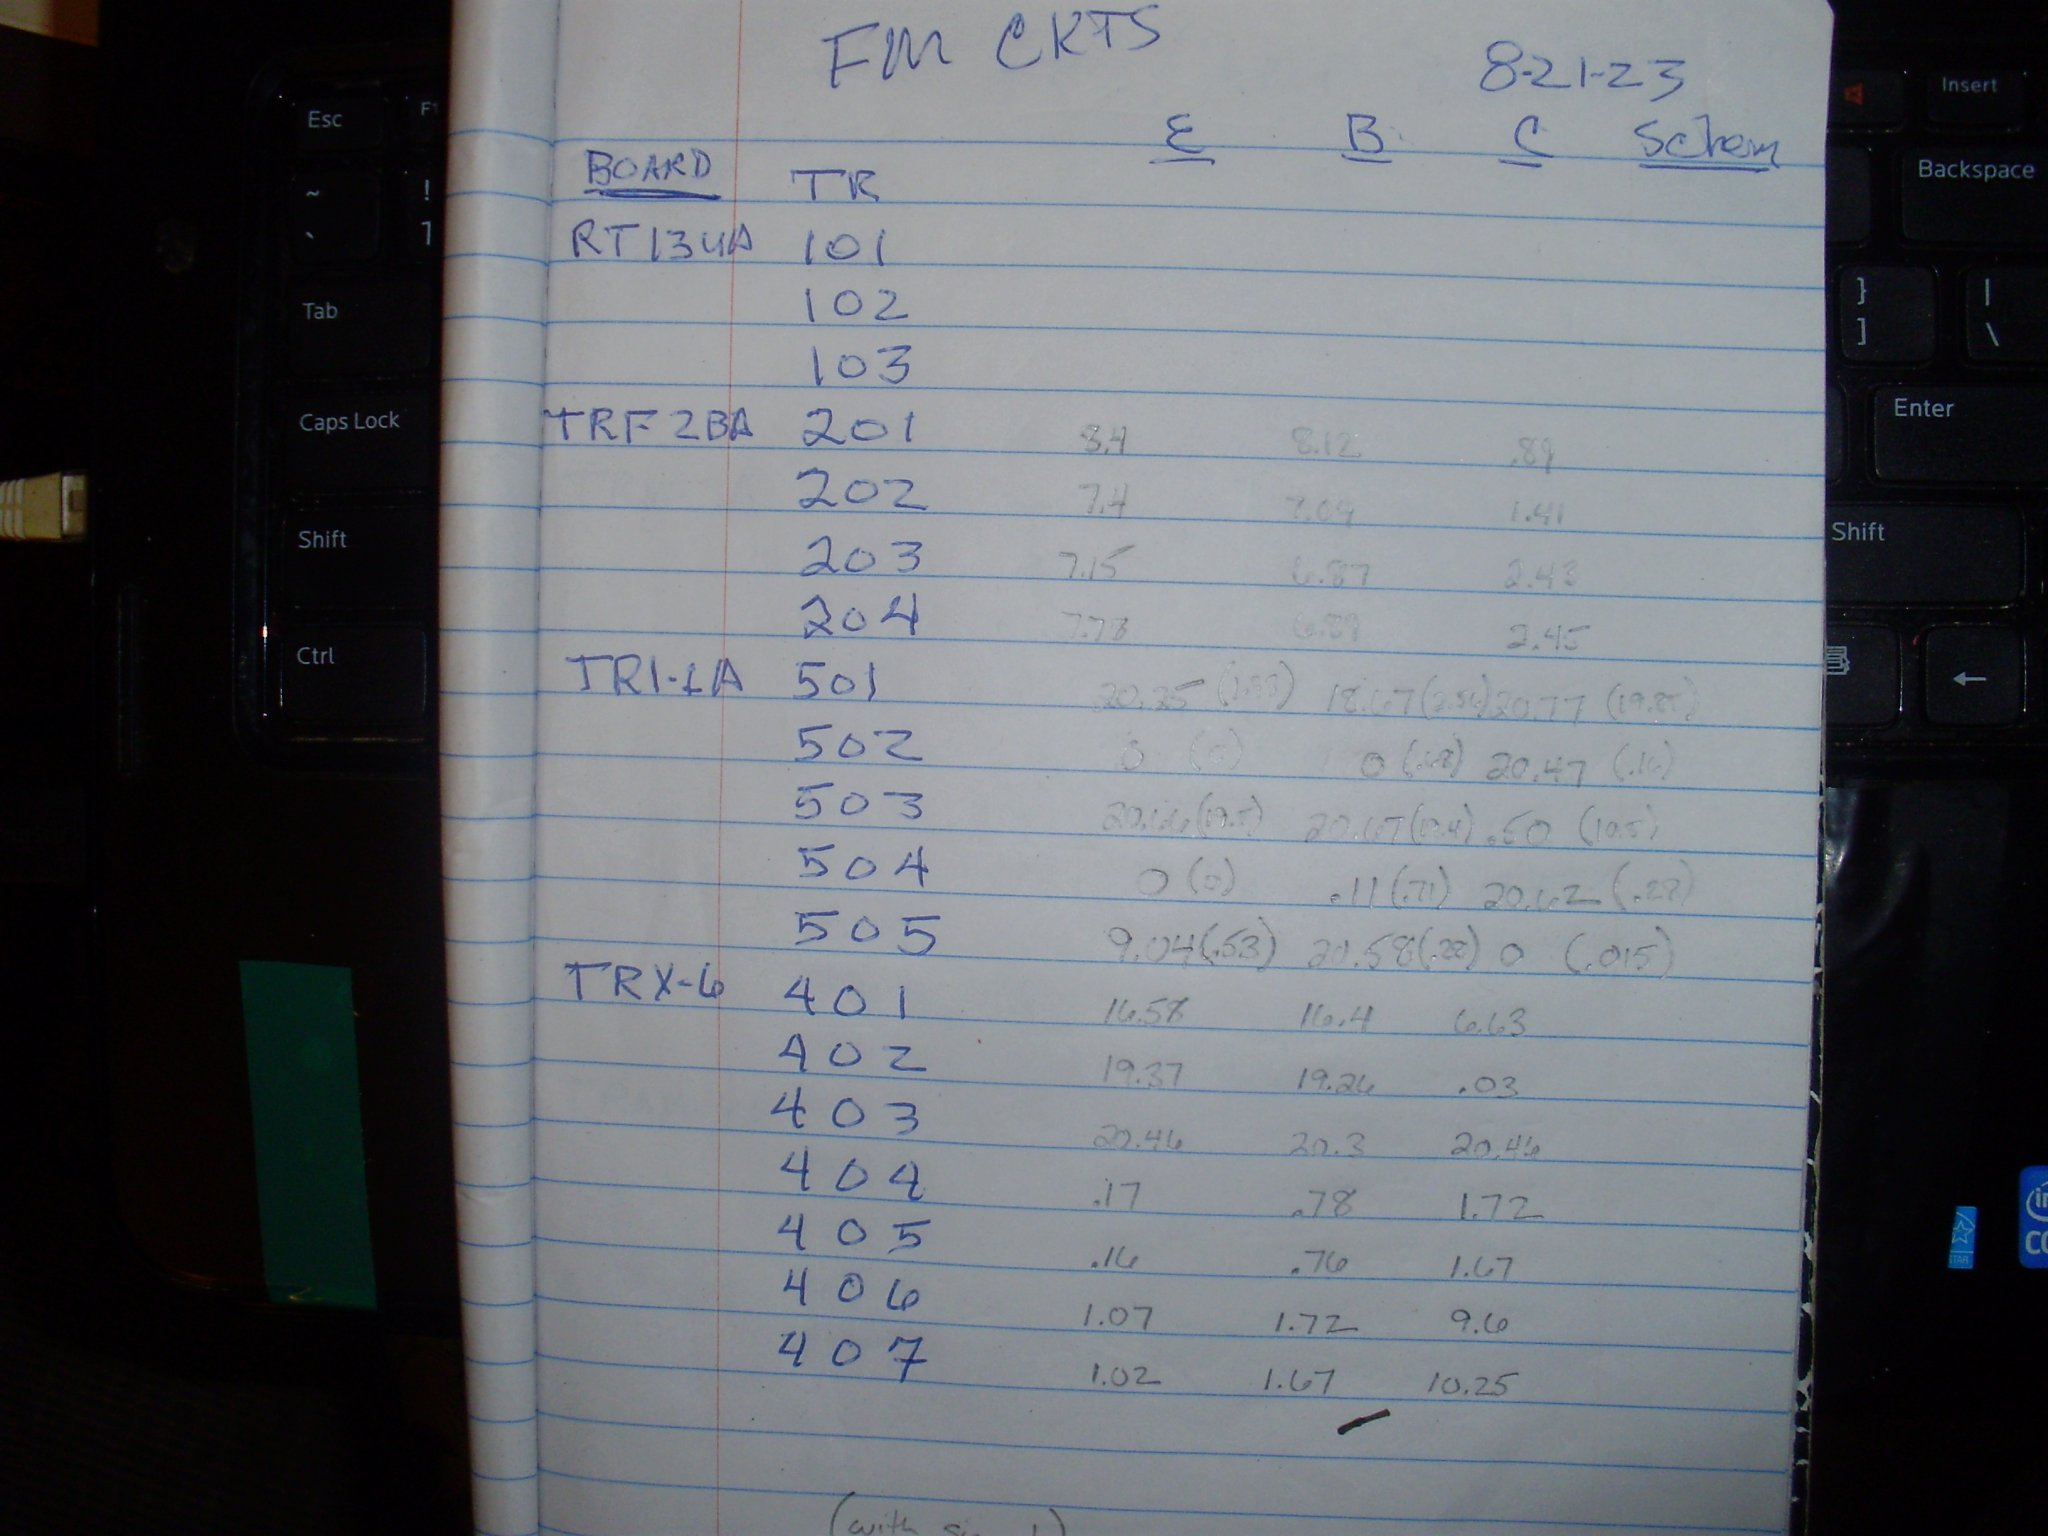 FM CKTS
8-21-23
E B C Schem
BOARD TR
RT134A 101
102
103
TRF2BA 201 8.4 8.12 .89
202 7.4 7.09 1.41
203 7.15 6.87 2.43
204 7.73 6.89 2.45
501 20.25 18.67 20.77
502 0 (0) 0 (.68) 20.47 (.16)
503 20.66 (19.5) 20.67 (19.4) .50 (10.5)
504 0 (0) .11 (.71) 20.62 (.28)
505 9.04 (.53) 20.58 (.28) 0 (.015)
TRX-6 401 16.58 16.4 6.63
402 19.37 19.26 .03
403 20.46 20.3 20.46
404 .17 .78 1.72
405 .16 .76 1.67
406 1.07 1.72 9.6
407 1.02 1.67 10.25
(with
Esc
F1
~
`
!
1
Tab
Caps Lock
Shift
Ctrl
Insert
Backspace
}
]
|
\
Enter
Shift
←